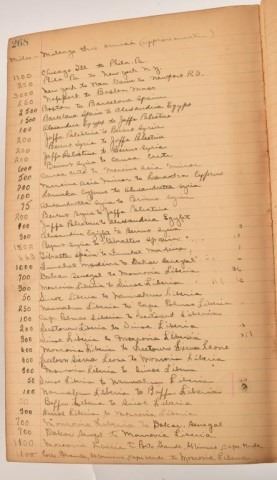 268
Miles - Mileage this cruise (approximately)
1300 Chicago Ill to Phila Pa.
250 Phila Pa to New York N.Y.
New York to San Domingo to Newport R.I.
Newport to Boston Mass
2500 Boston to Barcelona Spain
1500 Barcelona Spain to Alexandria Egypt
100 Alexandria Egypt to Jaffa Palestine
200 Jaffa Palestine to Beirut Syria
200 Beirut Syria to Jaffa Palestine
200 Jaffa Palestine to Beirut Syria
600 Beirut Syria to Canea Crete
500 Canea Crete to Mersina Asia Minor
200 Mersina Asia Minor to Larnaca Cyprus
100 Larnaka Cyprus to Alexandretta Syria
75 Alexandretta Syria to Beirut Syria
200 Beirut Syria to Jaffa Palestine
Jaffa Palestine to Alexandria Egypt
Alexandria Egypt to Beirut Syria
1800 Beirut Syria to Gibraltar Spain
Gibraltar Spain to Funchal Madeira
1000 Funchal Madeira to Dakar Senegal
700 Dakar Senegal to Monrovia Liberia
200 Monrovia Liberia to Sinoe Liberia
50 Sinoe Liberia to Liberia
250 Liberia to Cape Palmas Liberia
100 Cape Palmas Liberia to Liberia
200 Liberia to Sinoe Liberia
300 Sinoe Liberia to Monrovia Liberia
400 Monrovia Liberia to Freetown Sierra Leone
400 Sierra Leone to Monrovia Liberia
200 Monrovia Liberia to Sinoe Liberia
50 Sinoe Liberia to Liberia
100 Liberia to Baffu Liberia
Baffu Liberia to Sinoe Liberia
200 Sinoe Liberia to Monrovia Liberia
700 Monrovia Liberia to Dakar Senegal
700 Dakar Senegal to Monrovia Liberia
Monrovia Liberia to Porto Grande Cape Verde
Porto Grande Cape Verde to Monrovia Liberia